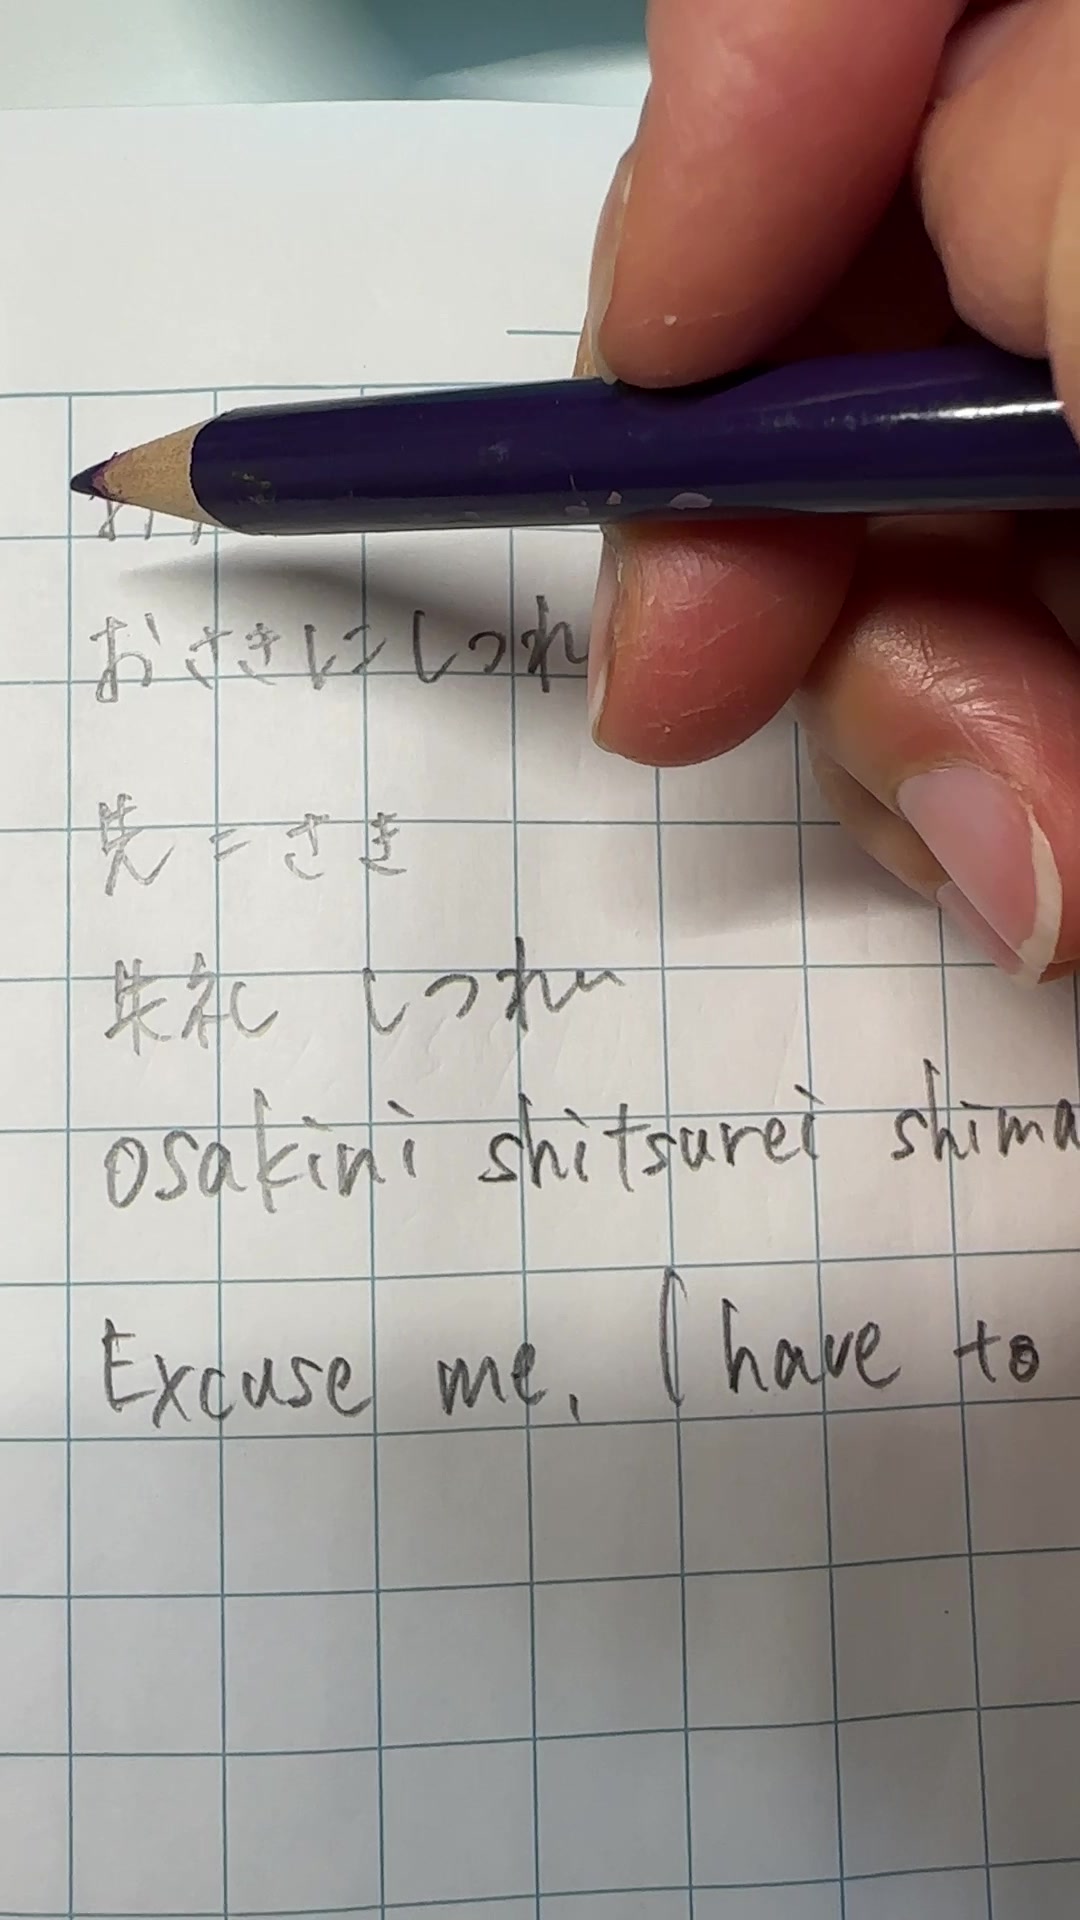 おさきにしつれ
先=さき
失礼 しつれい
osakini shitsurei shima
Excuse me, I have to